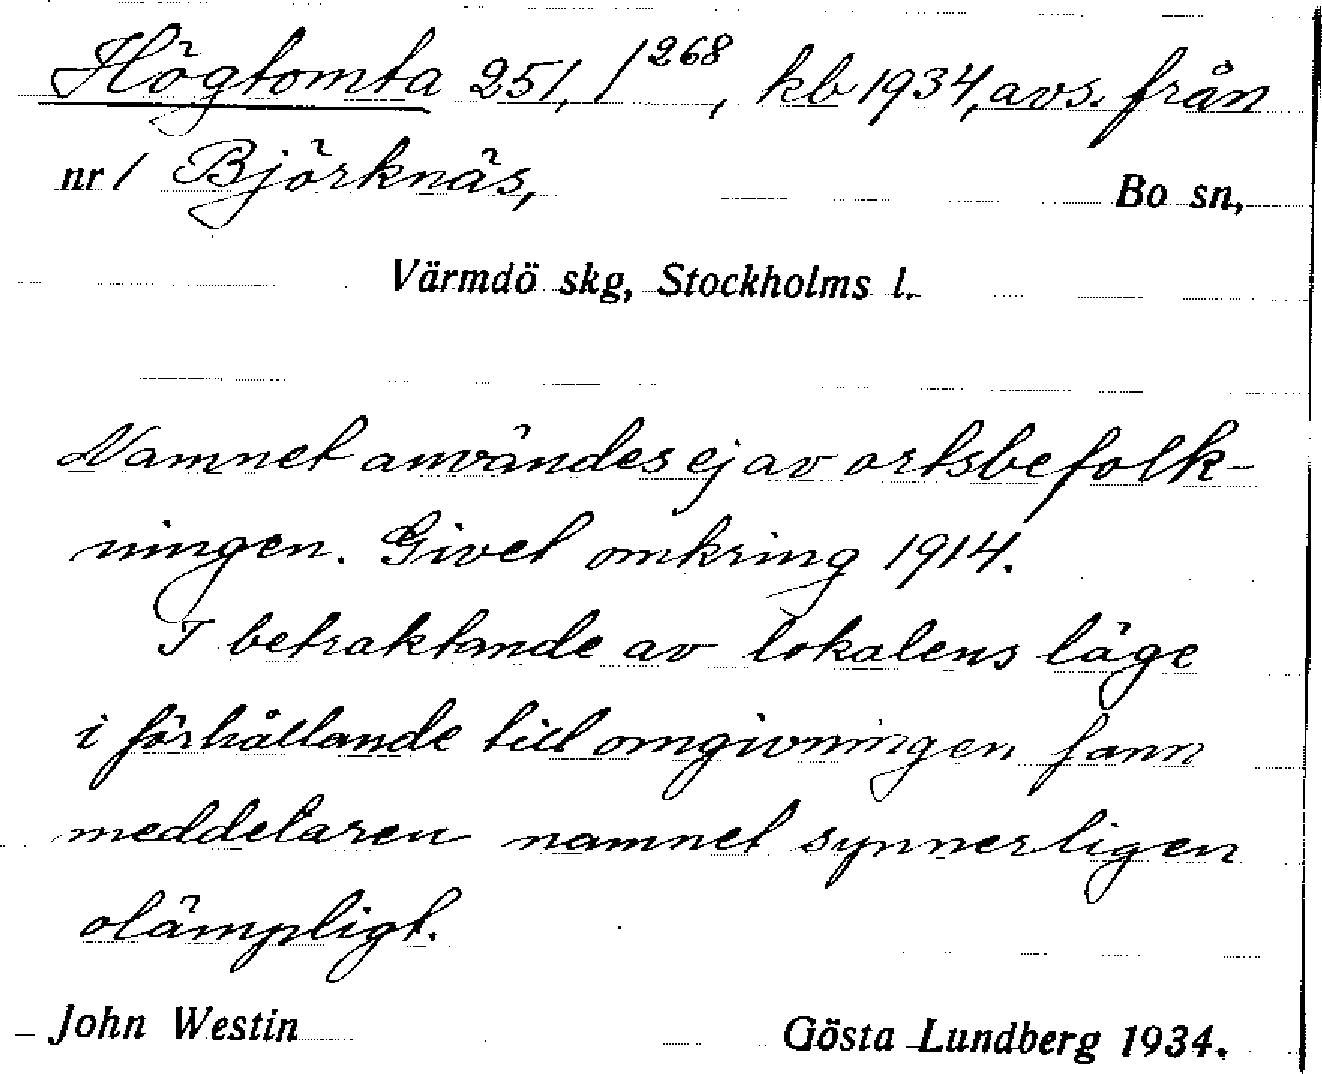 Högtomta 251, 1²⁶⁸, kb 1934, avs. från
nr 1 Björknäs, Bo sn,
Värmdö skg, Stockholms l.
Namnet användes ej av ortsbefolk-
ningen. Givet omkring 1914.
I betraktande av lokalens läge
i förhållande till omgivningen fann
meddelaren namnet synnerligen
olämpligt.
John Westin Gösta Lundberg 1934.